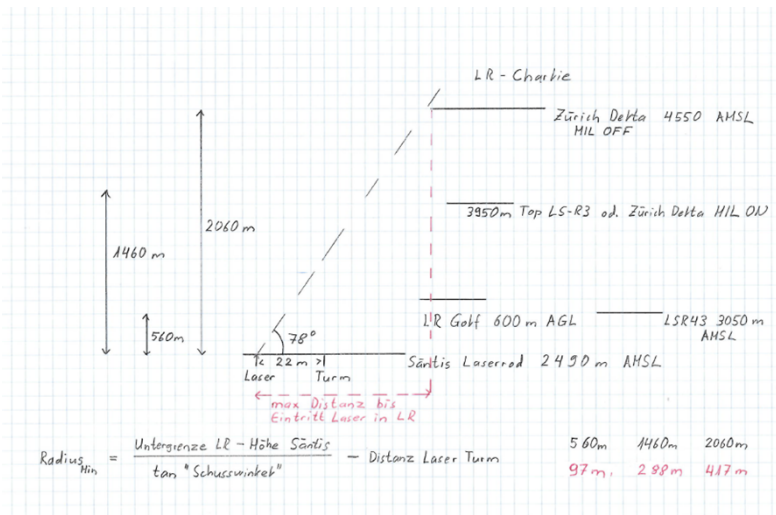 LR - Charlie
Zürich Delta 4550 AMSL
MIL OFF
2060 m
3950m Top LS-R3 od. Zürich Delta MIL ON
1460 m
560m
78°
LR Golf 600 m AGL
LSR43 3050 m
AMSL
|< 22 m >|
Säntis Laserrod 2490 m AMSL
Laser
Turm
max Distanz bis
Eintritt Laser in LR
Radius Min = Untergrenze LR - Höhe Säntis
tan "Schusswinkel"
- Distanz Laser Turm
560m 1460m 2060m
97m. 288m 417m